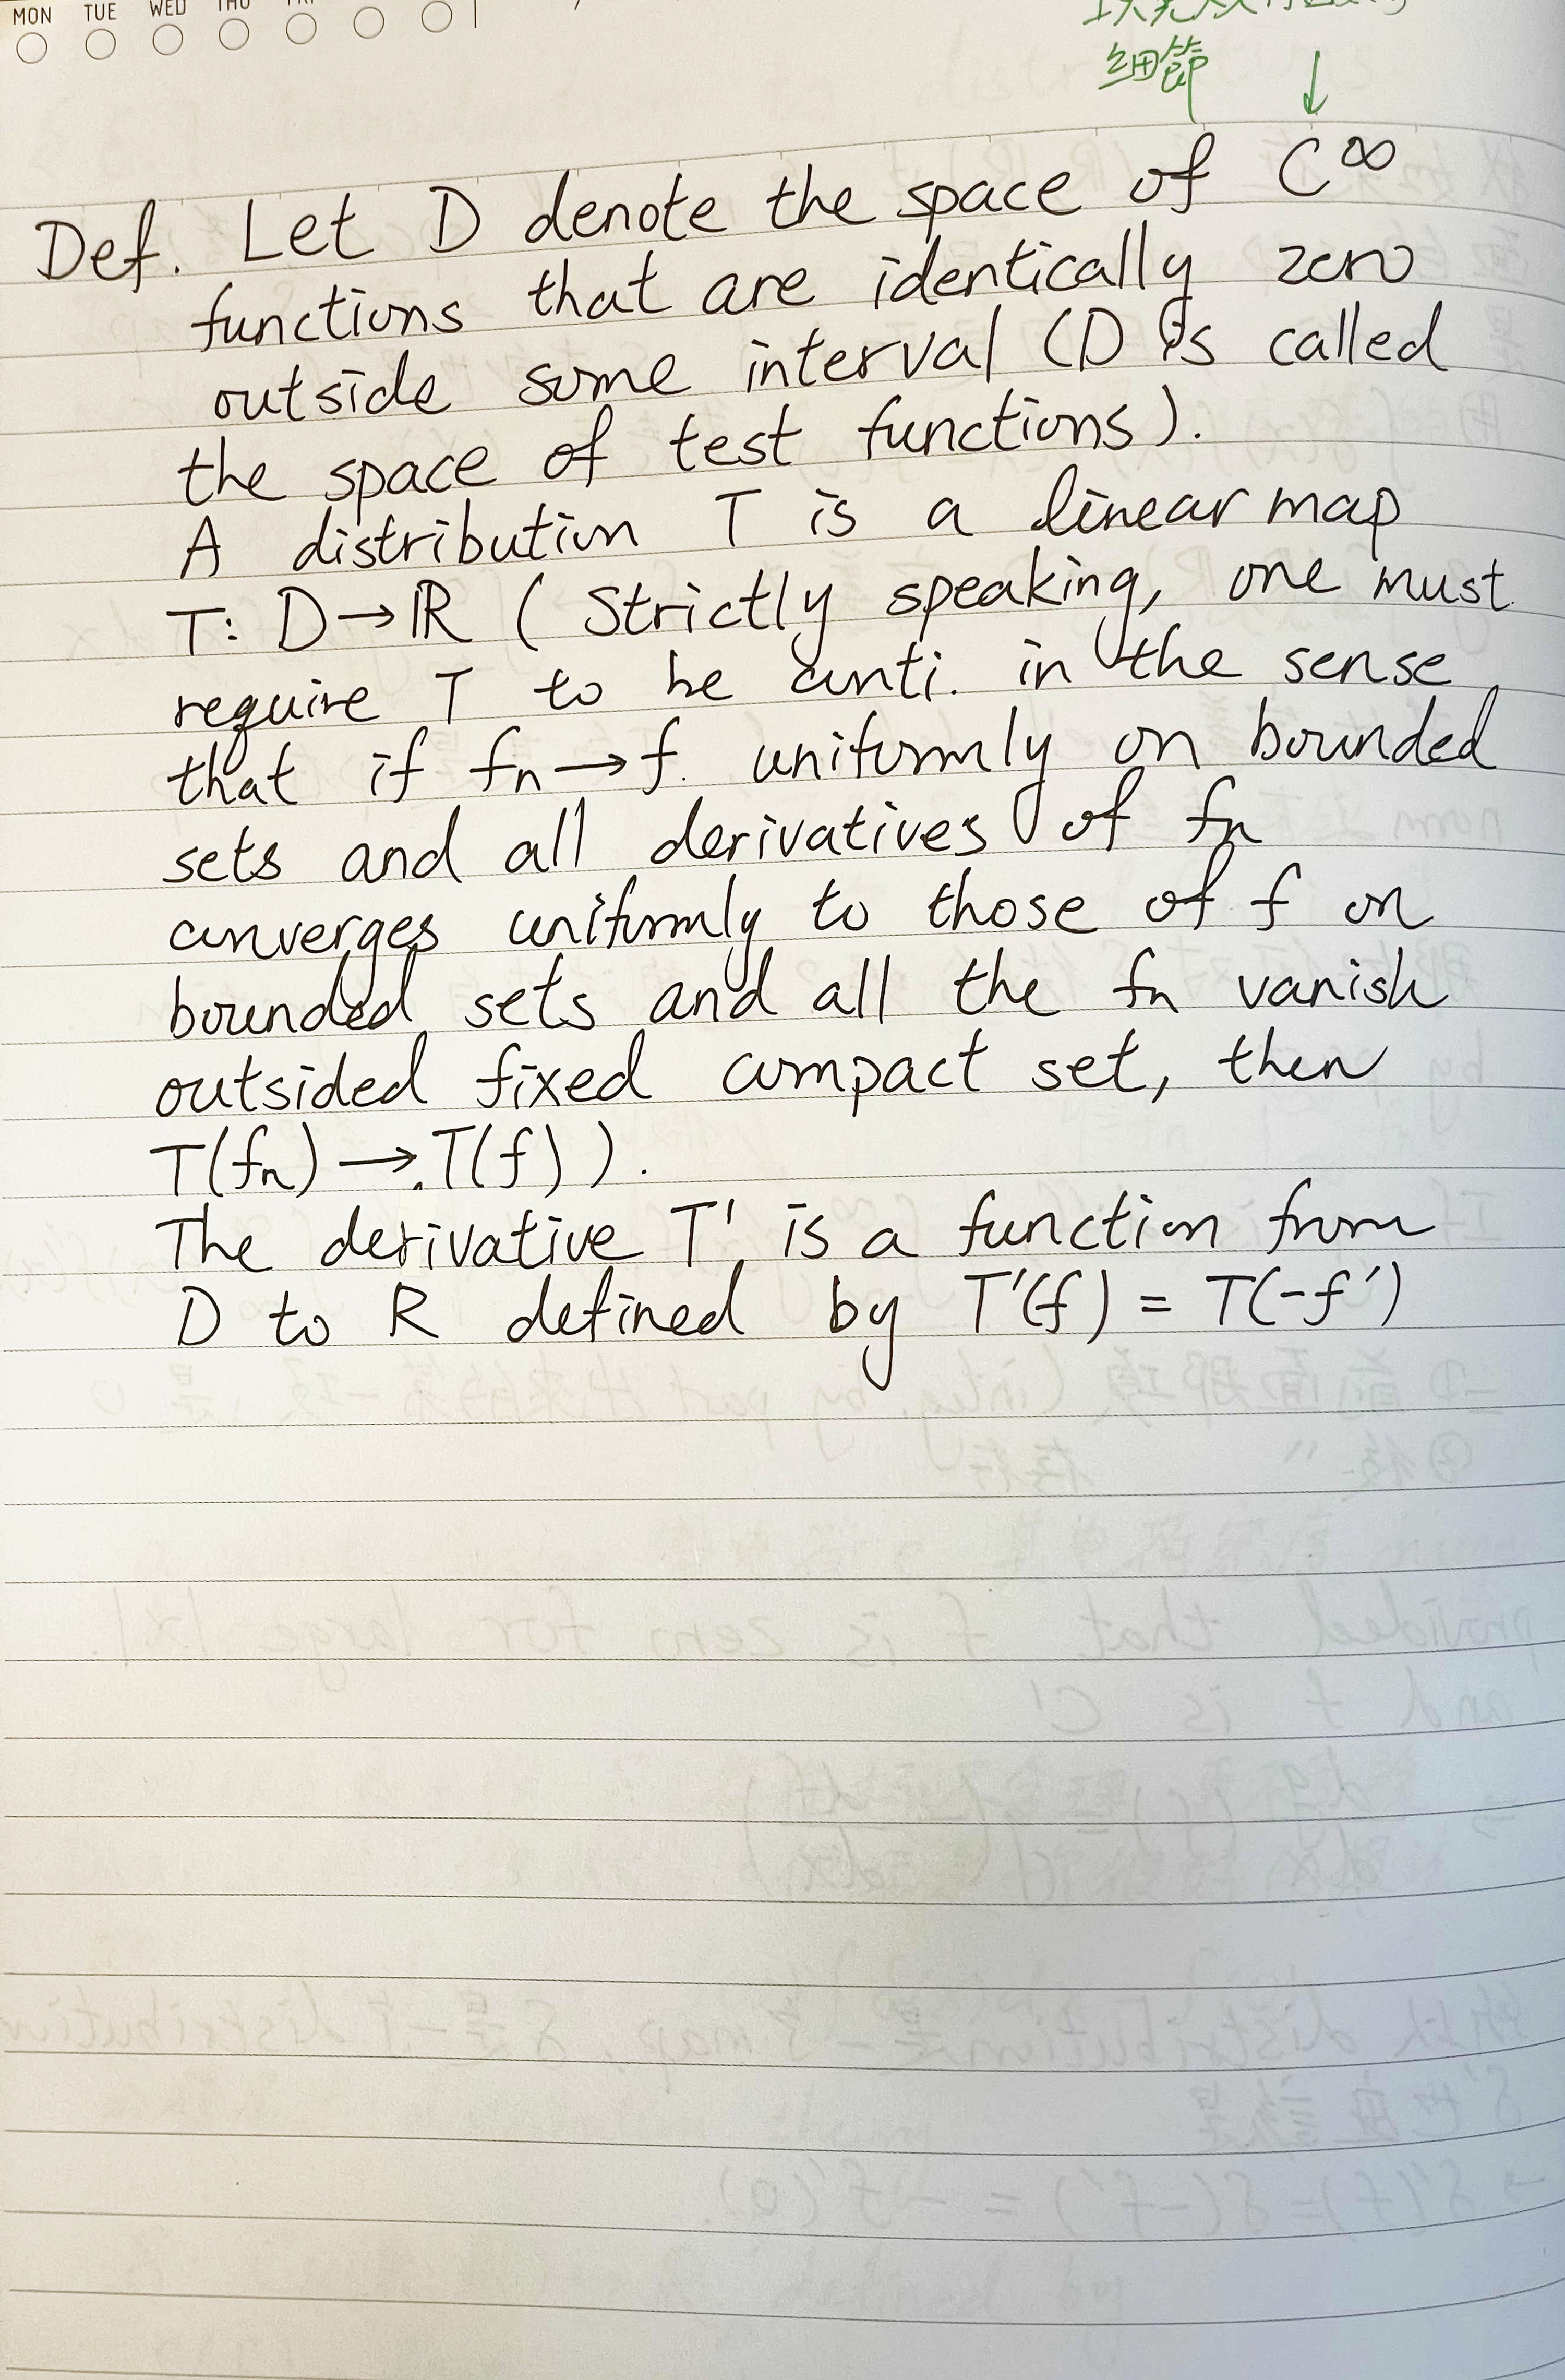 MON TUE WED THU
细節
Def. Let D denote the space of C^∞
functions that are identically zero
outside some interval (D is called
the space of test functions).
A distribution T is a linear map
T: D→ℝ ( Strictly speaking, one must
require T to be conti. in the sense
that if fₙ→f uniformly on bounded
sets and all derivatives of fₙ
converges uniformly to those of f on
bounded sets and all the fₙ vanish
outsided fixed compact set, then
T(fₙ)→T(f) ).
The derivative T' is a function from
D to R defined by T'(f) = T(-f')